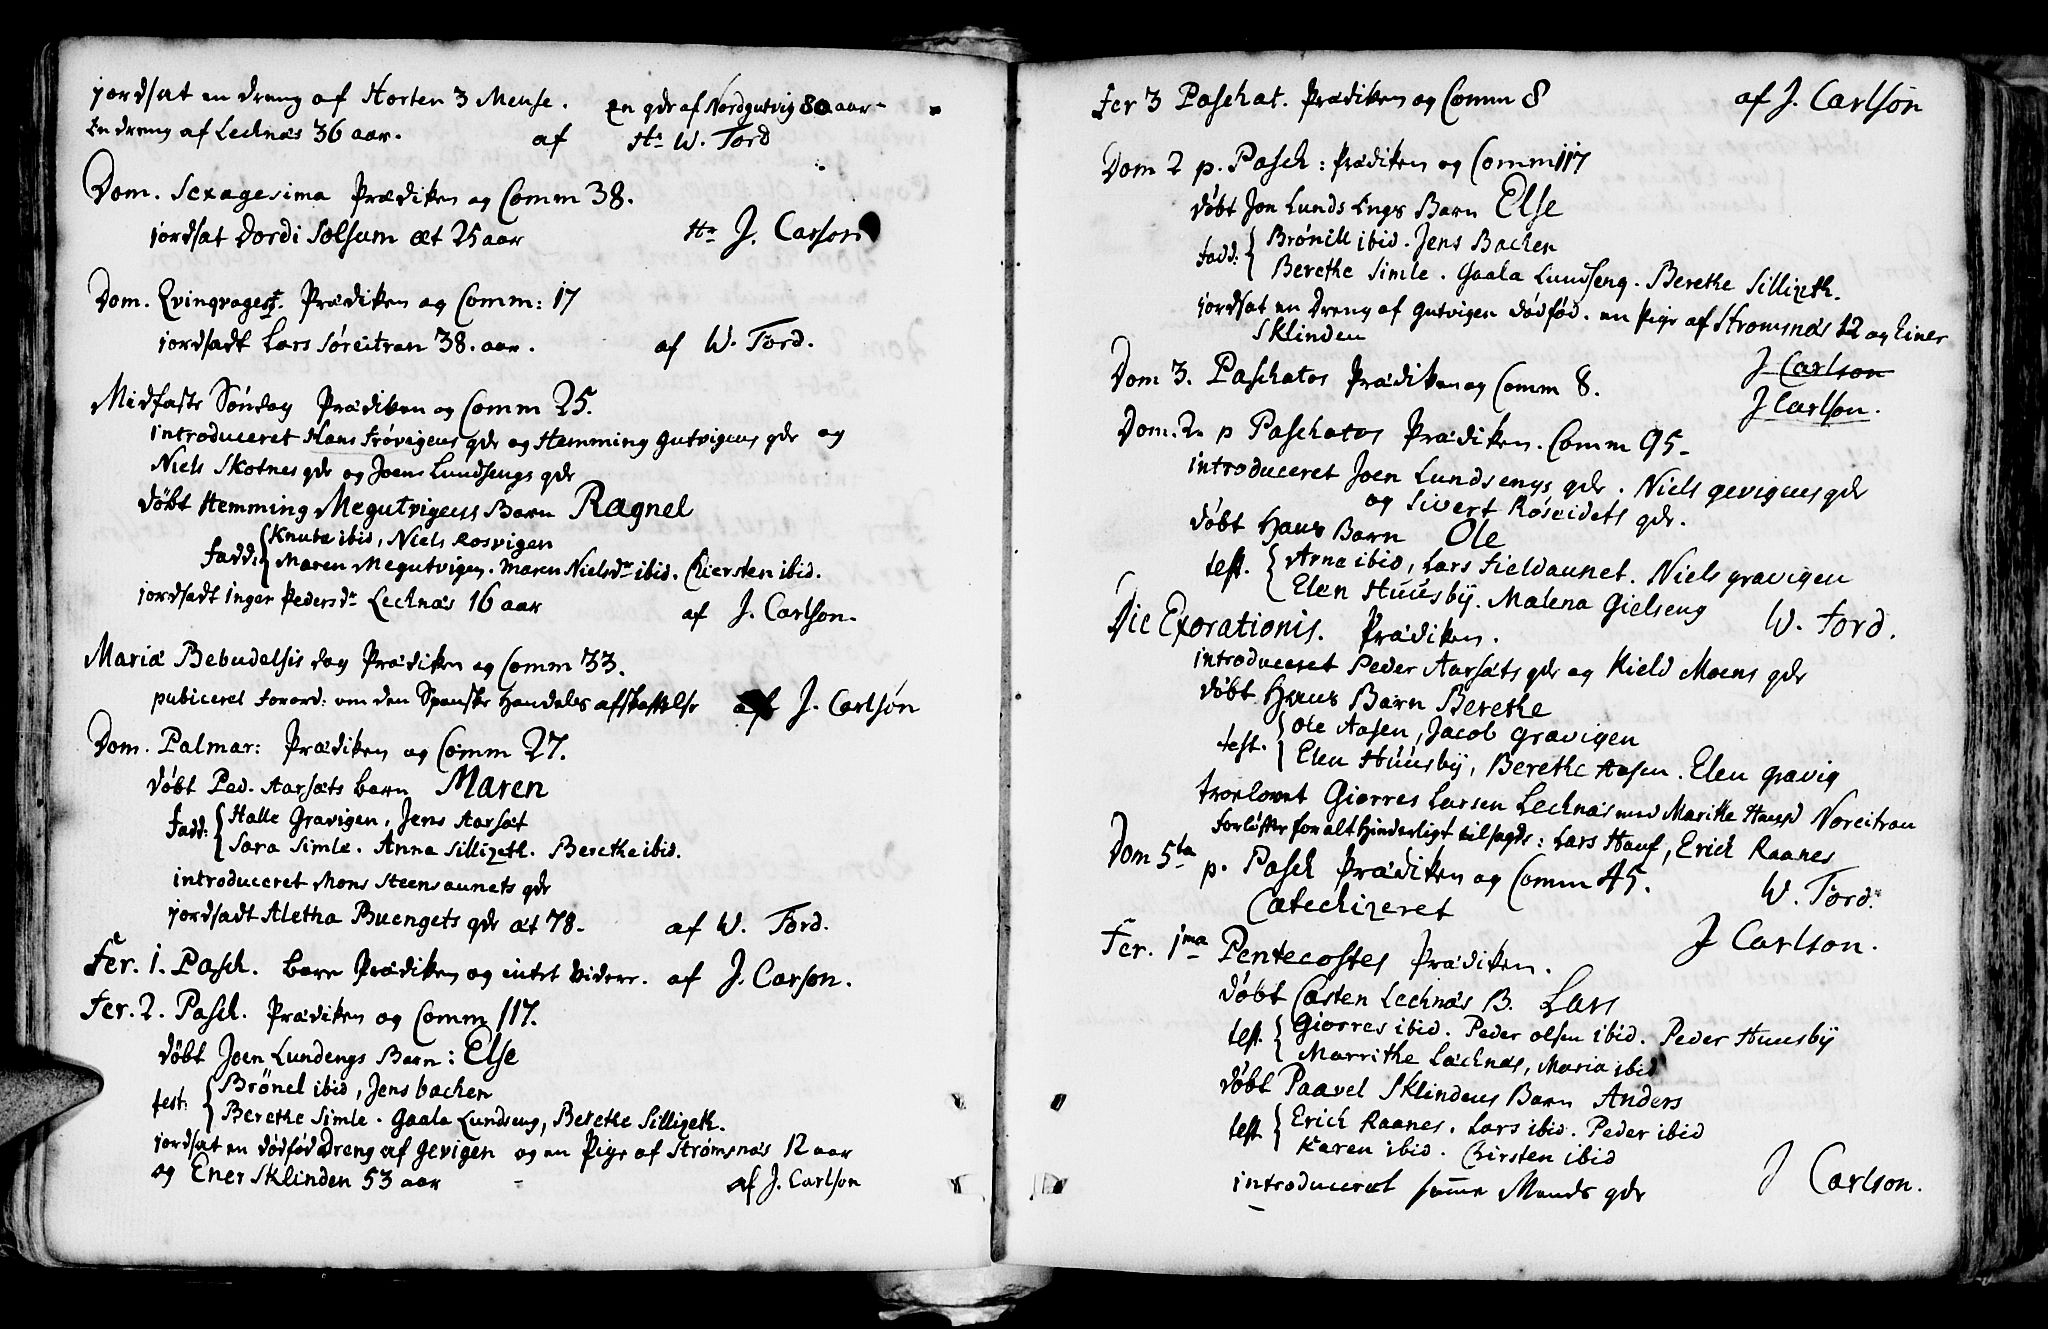 jordsat en dreng af Horten 3 Mense. en qdr af Nordgutvig 80 aar
En dreng af Lecknæs 36 aar. af Hr W. Tord
Dom. Sexagesima Prædiken og Comm 38.
jordsat Dordi Solsum æt 25 aar Hr J. Carson
Dom. Qvinqvagest. Prædiken og Comm: 17
jordsadt Lars Søreitran 38. aar. af W. Tord.
Midfaste Søndag Prædiken og Comm 25.
introduceret Hans Frøvigens qdr og Hemming Gutvigens qdr og
Niels Skotnes qdr og Joens Lundsengs qdr
døbt Hemming Megutvigens Barn Ragnel
Fadd: Knut ibid, Niels Rosvigen
Maren Megutvigen. Maren Nielsdr ibid. Chiersten ibid.
jordsadt Inger Pedersdr Lecknæs 16 aar af J. Carlson.
Mariæ Bebudelsis dag Prædiken og Comm 33.
pubiceret Forord: om den Spanske Handels afskaffelse af J. Carlson
Dom. Palmar: Prædiken og Comm 27.
døbt Ped. Aarsæts barn Maren
Fadd: Halle Gravigen, Jens Aarsæt
Sara Simle. Anna Sillizeth. Berethe ibid.
introduceret Mons Steensaunets qdr
jordsadt Aletha Buengets qdr æt 78. af W. Tord.
Fer. 1. Pasch. bare Prædiken og intet videre. af J. Carson.
Fer. 2. Pasch. Prædiken og Comm 117.
døbt Joen Lundengs Barn: Else
test: Brønel ibid, Jens bachen
Berethe Simle. Gaala Lundseng, Berethe Sillizeth.
jordsat en dødfød Dreng af Gevigen og en Pige af Strømsnæs 12 aar
og Ener Sklinden 53 aar af J. Carlson
Fer 3 Paschat. Prædiken og Comm 8 af J. Carlson
Dom 2 p. Pasch: Prædiken og Comm 117
døbt Jon Lunds Engs Barn Else
Fadd: Brønill ibid. Jens Bachen
Berethe Simle. Gaala Lundseng. Berethe Sillizeth.
jordsat en Dreng af Gutvigen dødfød. en Pige af Stromsnæs 12 og Einer
Sklinden
J Carlson
Dom 3. Paschatos Prædiken og Comm 8. J Carlson.
Dom. 2. p Paschatos Prædiken. Comm 95.
introduceret Joen Lundsengs qdr. Niels Gevigens qdr
og Sivert Røseidets qdr.
døbt Hans Barn Ole
test. Arna ibid, Lars Fieldaunet. Niels Gravigen
Elen Huusbÿ. Malena Gielseng
Die Exorationis. Prædiken. W. Tord.
introduceret Peder Aarsæts qdr og Kield Moens qdr
døbt Hans Barn Berethe
test. Ole Aasen, Jacob Gravigen
Elen Huusbÿ, Berethe Aasen. Elen Gravig
troelovet Giorres Larsen Lecknæs med Maritte Hansd Noreitran
Forløfter for alt hinderligt tilsagde: Lars Hauf, Erich Raanes
Dom 5ta p. Pasch Prædiken og Comm 45.
Catechizeret W. Tord.
Fer. 1ma Pentecostes Prædiken. J Carlson.
døbt Casten Lecknæs B. Lars
test. Giorres ibid. Peder Olsen ibid. Peder Huusbÿ
Marrithe Læcknæs, Maria ibid
døbt Paavel Sklindens Barn Anders
test Erich Raanes. Lars ibid. Peder ibid
Karen ibid. Chirsten ibid
introduceret samme Mands qdr J Carlson.